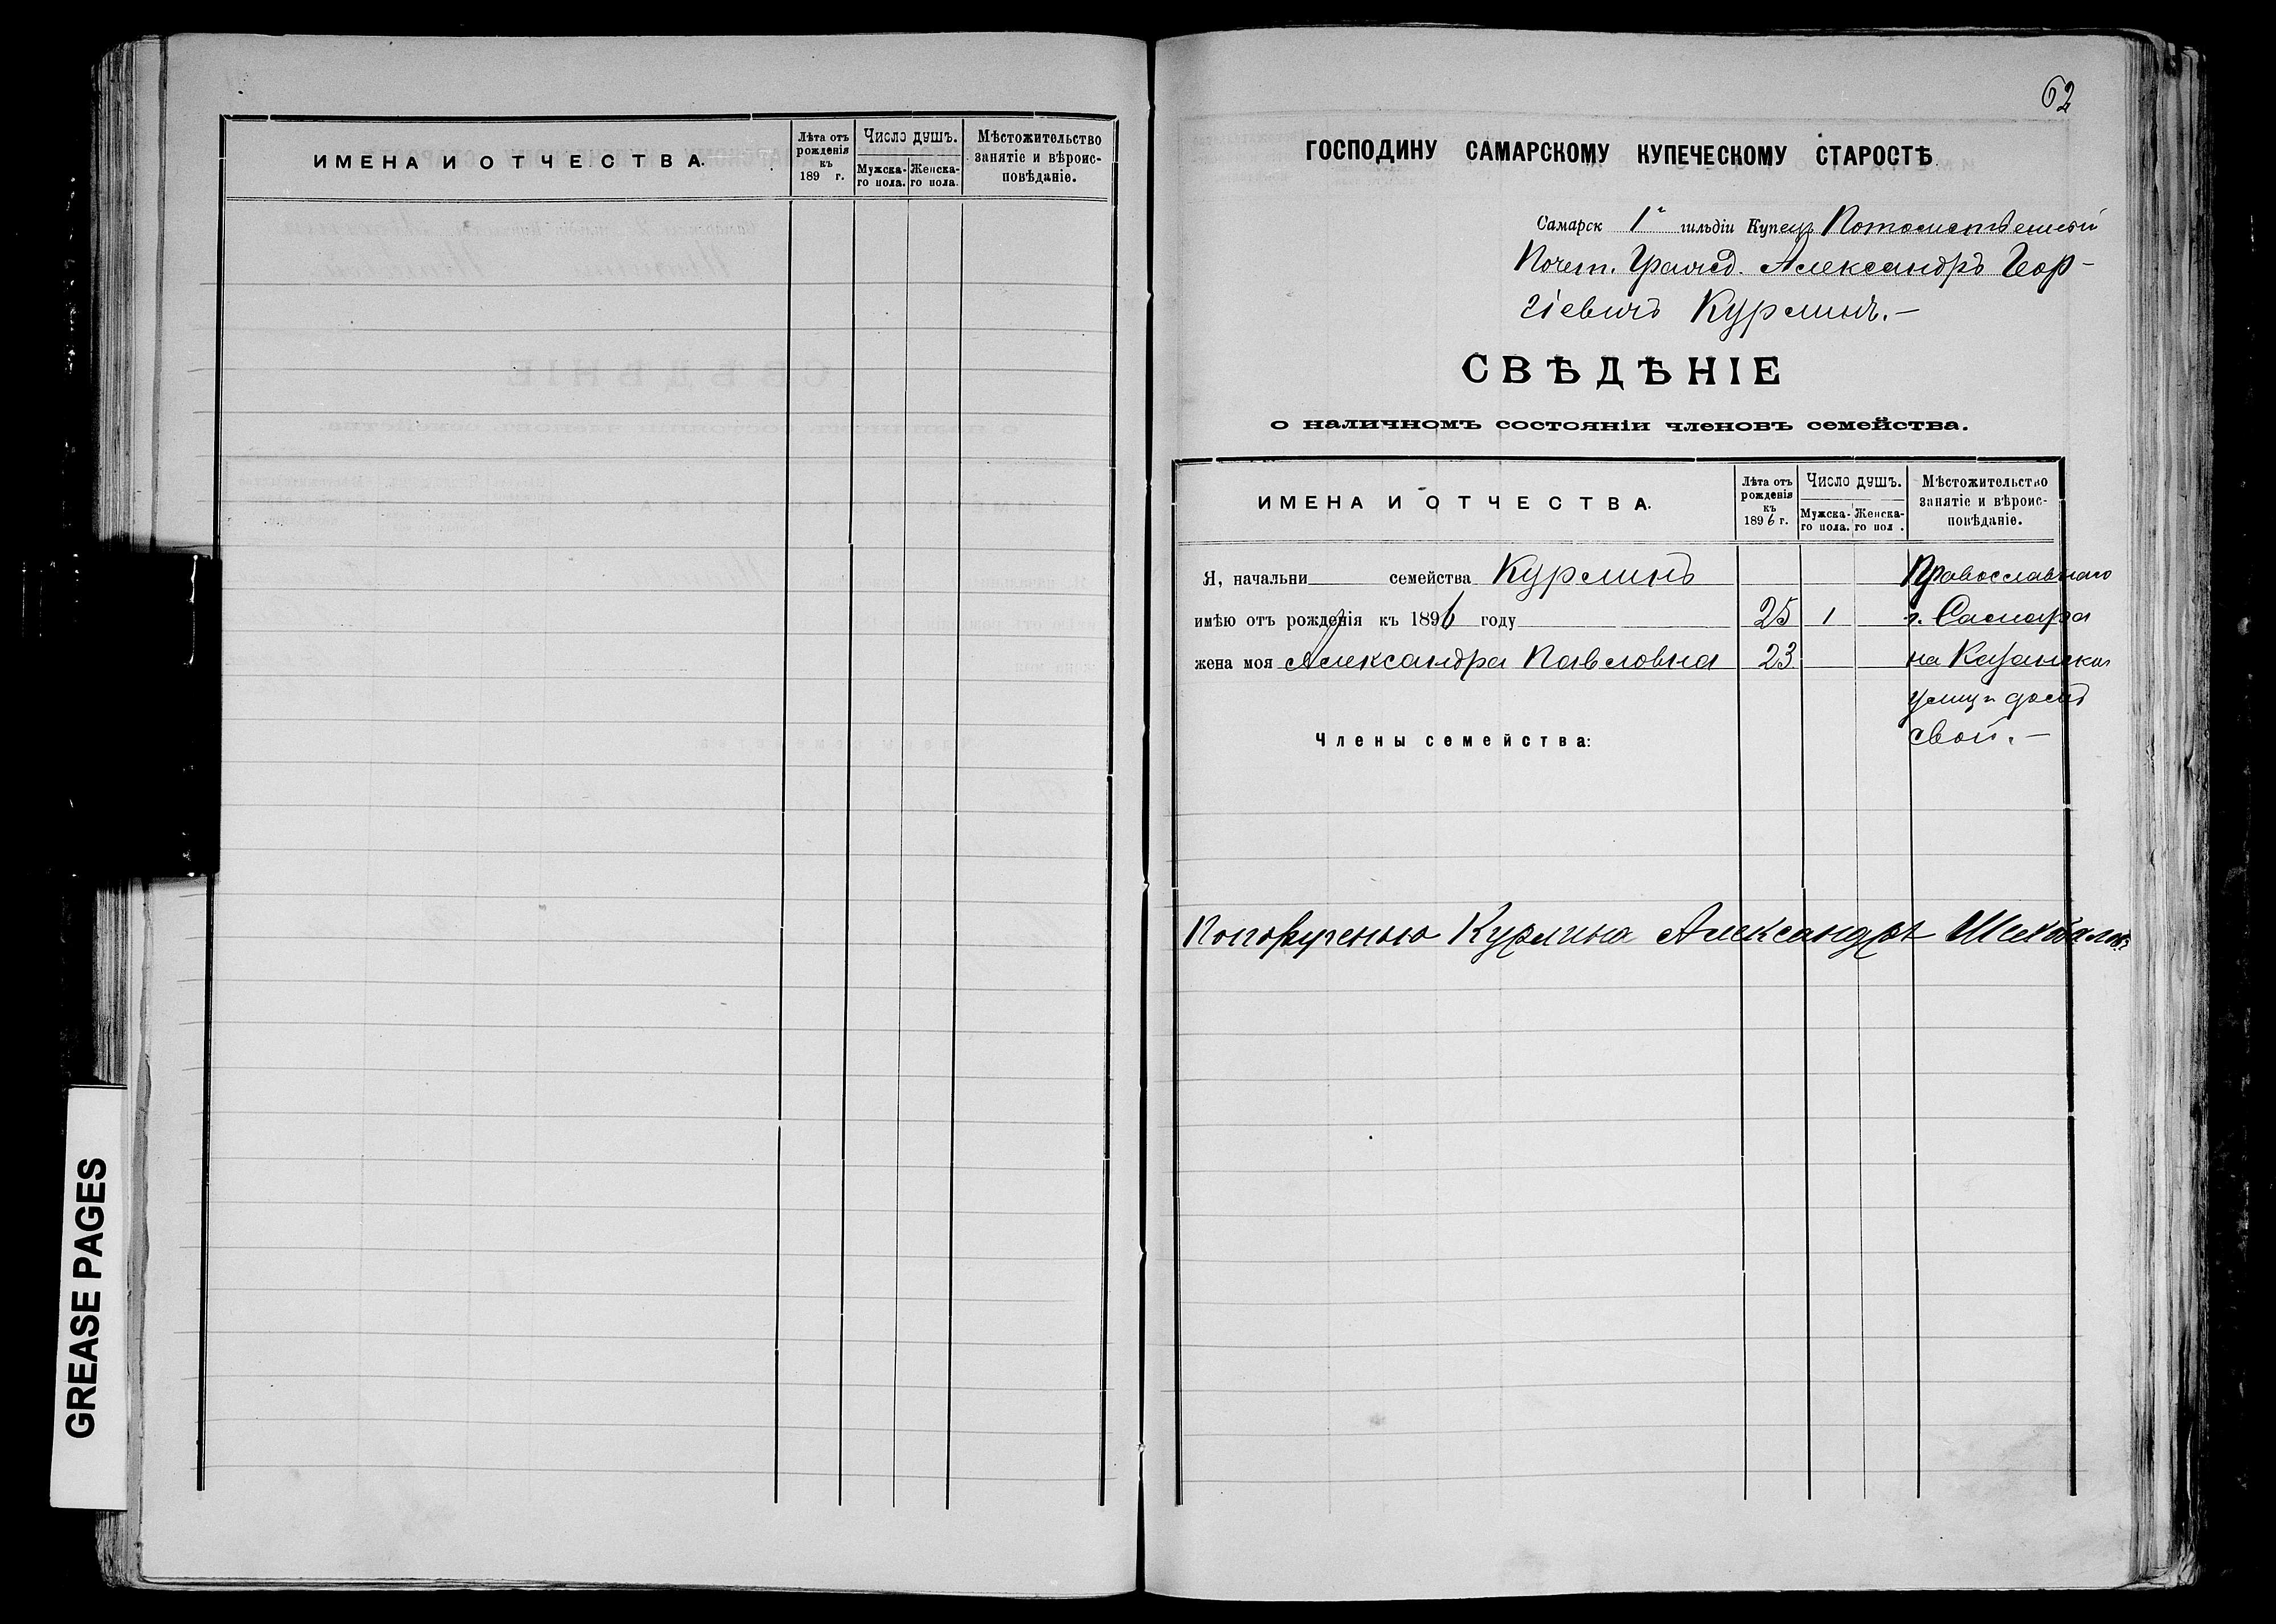 ИМЕНА И ОТЧЕСТВА.
Лѣта отъ рожденія къ 189 г.
Число душъ.
Мужска-го пола.
Женска-го пола.
Мѣстожительство занятіе и вѣроис-повѣданіе.
GREASE PAGES
62
ГОСПОДИНУ САМАРСКОМУ КУПЕЧЕСКОМУ СТАРОСТѢ.
Самарск 1й гильдіи Купецъ Потомственный
Почет. Гражд. Александръ Геор-
гіевичъ Курлинъ.—
СВѢДѢНІЕ
о наличномъ состояніи членовъ семейства.
ИМЕНА И ОТЧЕСТВА.
Лѣта отъ рожденія къ 1896 г.
Число душъ.
Мужска-го пола.
Женска-го пол .
Мѣстожительство занятіе и вѣроис-повѣданіе.
Я, начальни семейства Курлинъ Православнаго
имѣю отъ рожденія къ 1896 году 25 1 г. Самара
жена моя Александра Павловна 23 на Казанской
улицѣ домъ
Члены семейства: свой.—
По порученію Курлина Александръ